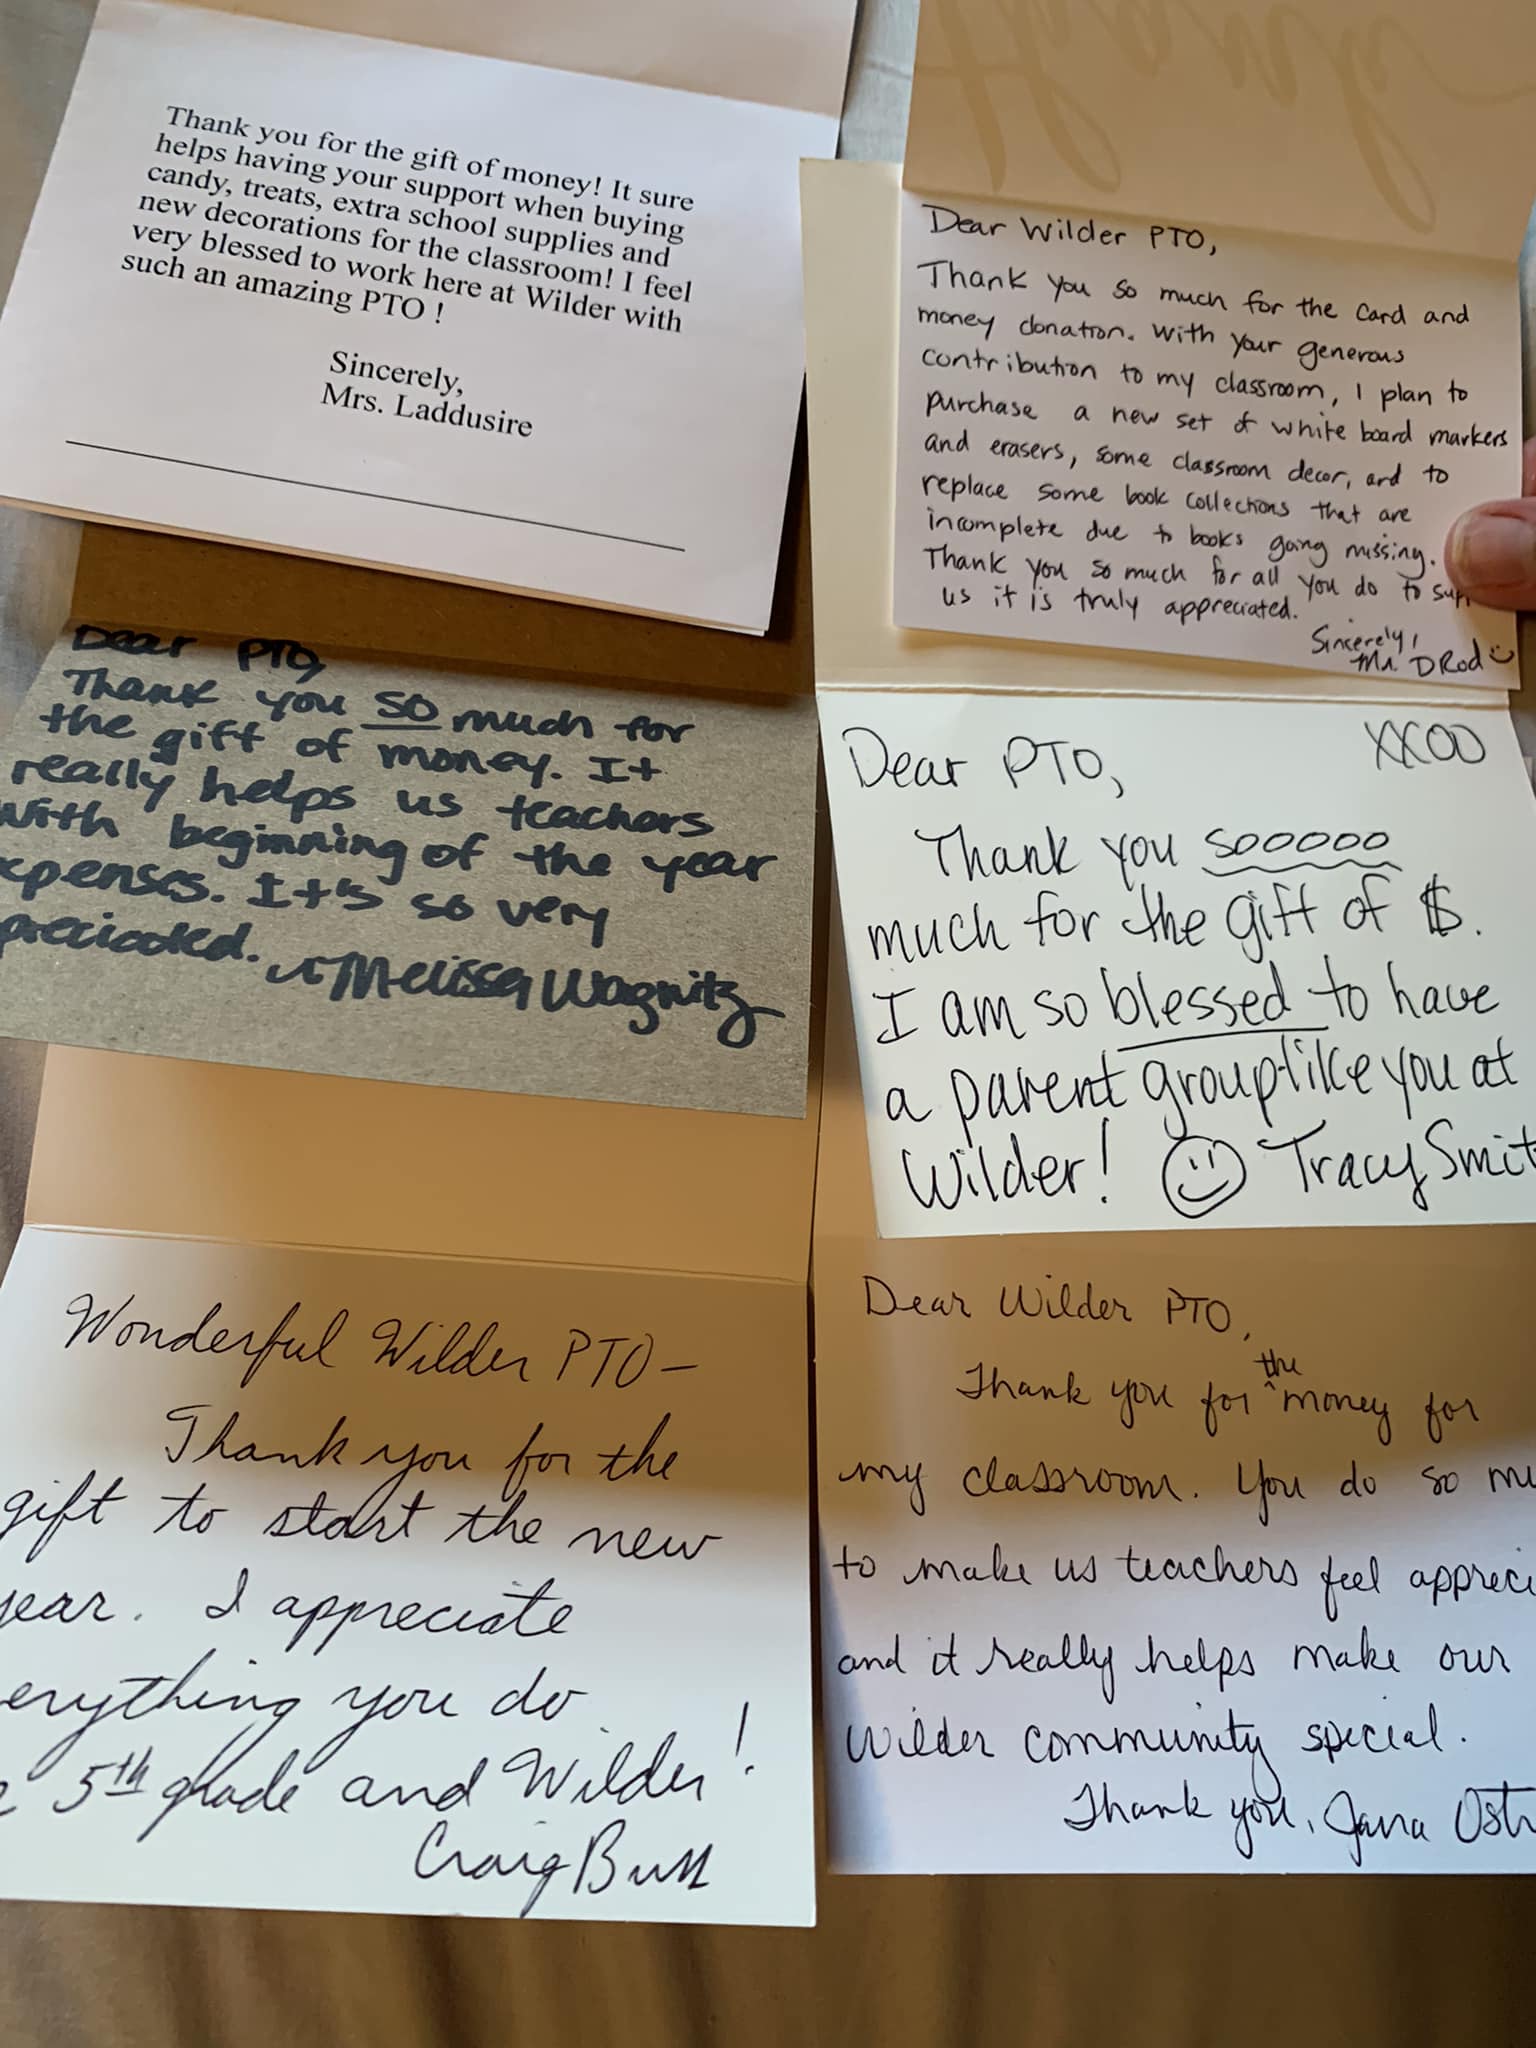 Thank you for the gift of money! It sure
helps having your support when buying
candy, treats, extra school supplies and
new decorations for the classroom! I feel
very blessed to work here at Wilder with
such an amazing PTO !
Sincerely,
Mrs. Laddusire
Thank
Dear Wilder PTO,
Thank you so much for the card and
money donation. With your generous
contribution to my classroom, I plan to
purchase a new set of white board markers
and erasers, some classroom decor, and to
replace some book collections that are
incomplete due to books going missing.
Thank you so much for all you do to supp
us it is truly appreciated.
Sincerely,
Mr. DRod
Dear PTO,
Thank you so much for
the gift of money. It
really helps us teachers
with beginning of the year
xpenses. It's so very
preciated.
Melissa Wagnitz
Dear PTO,
XXOO
Thank you sooooo
much for the gift of $.
I am so blessed to have
a parent group like you at
Wilder! Tracy Smit
Wonderful Wilder PTO-
Thank you for the
gift to start the new
year. I appreciate
erything you do
5th grade and Wilder!
Craig Butt
Dear Wilder PTO,
Thank you for the money for
my classroom. You do so mu
to make us teachers feel appreci
and it really helps make our
Wilder community special.
Thank you, Jana Ost